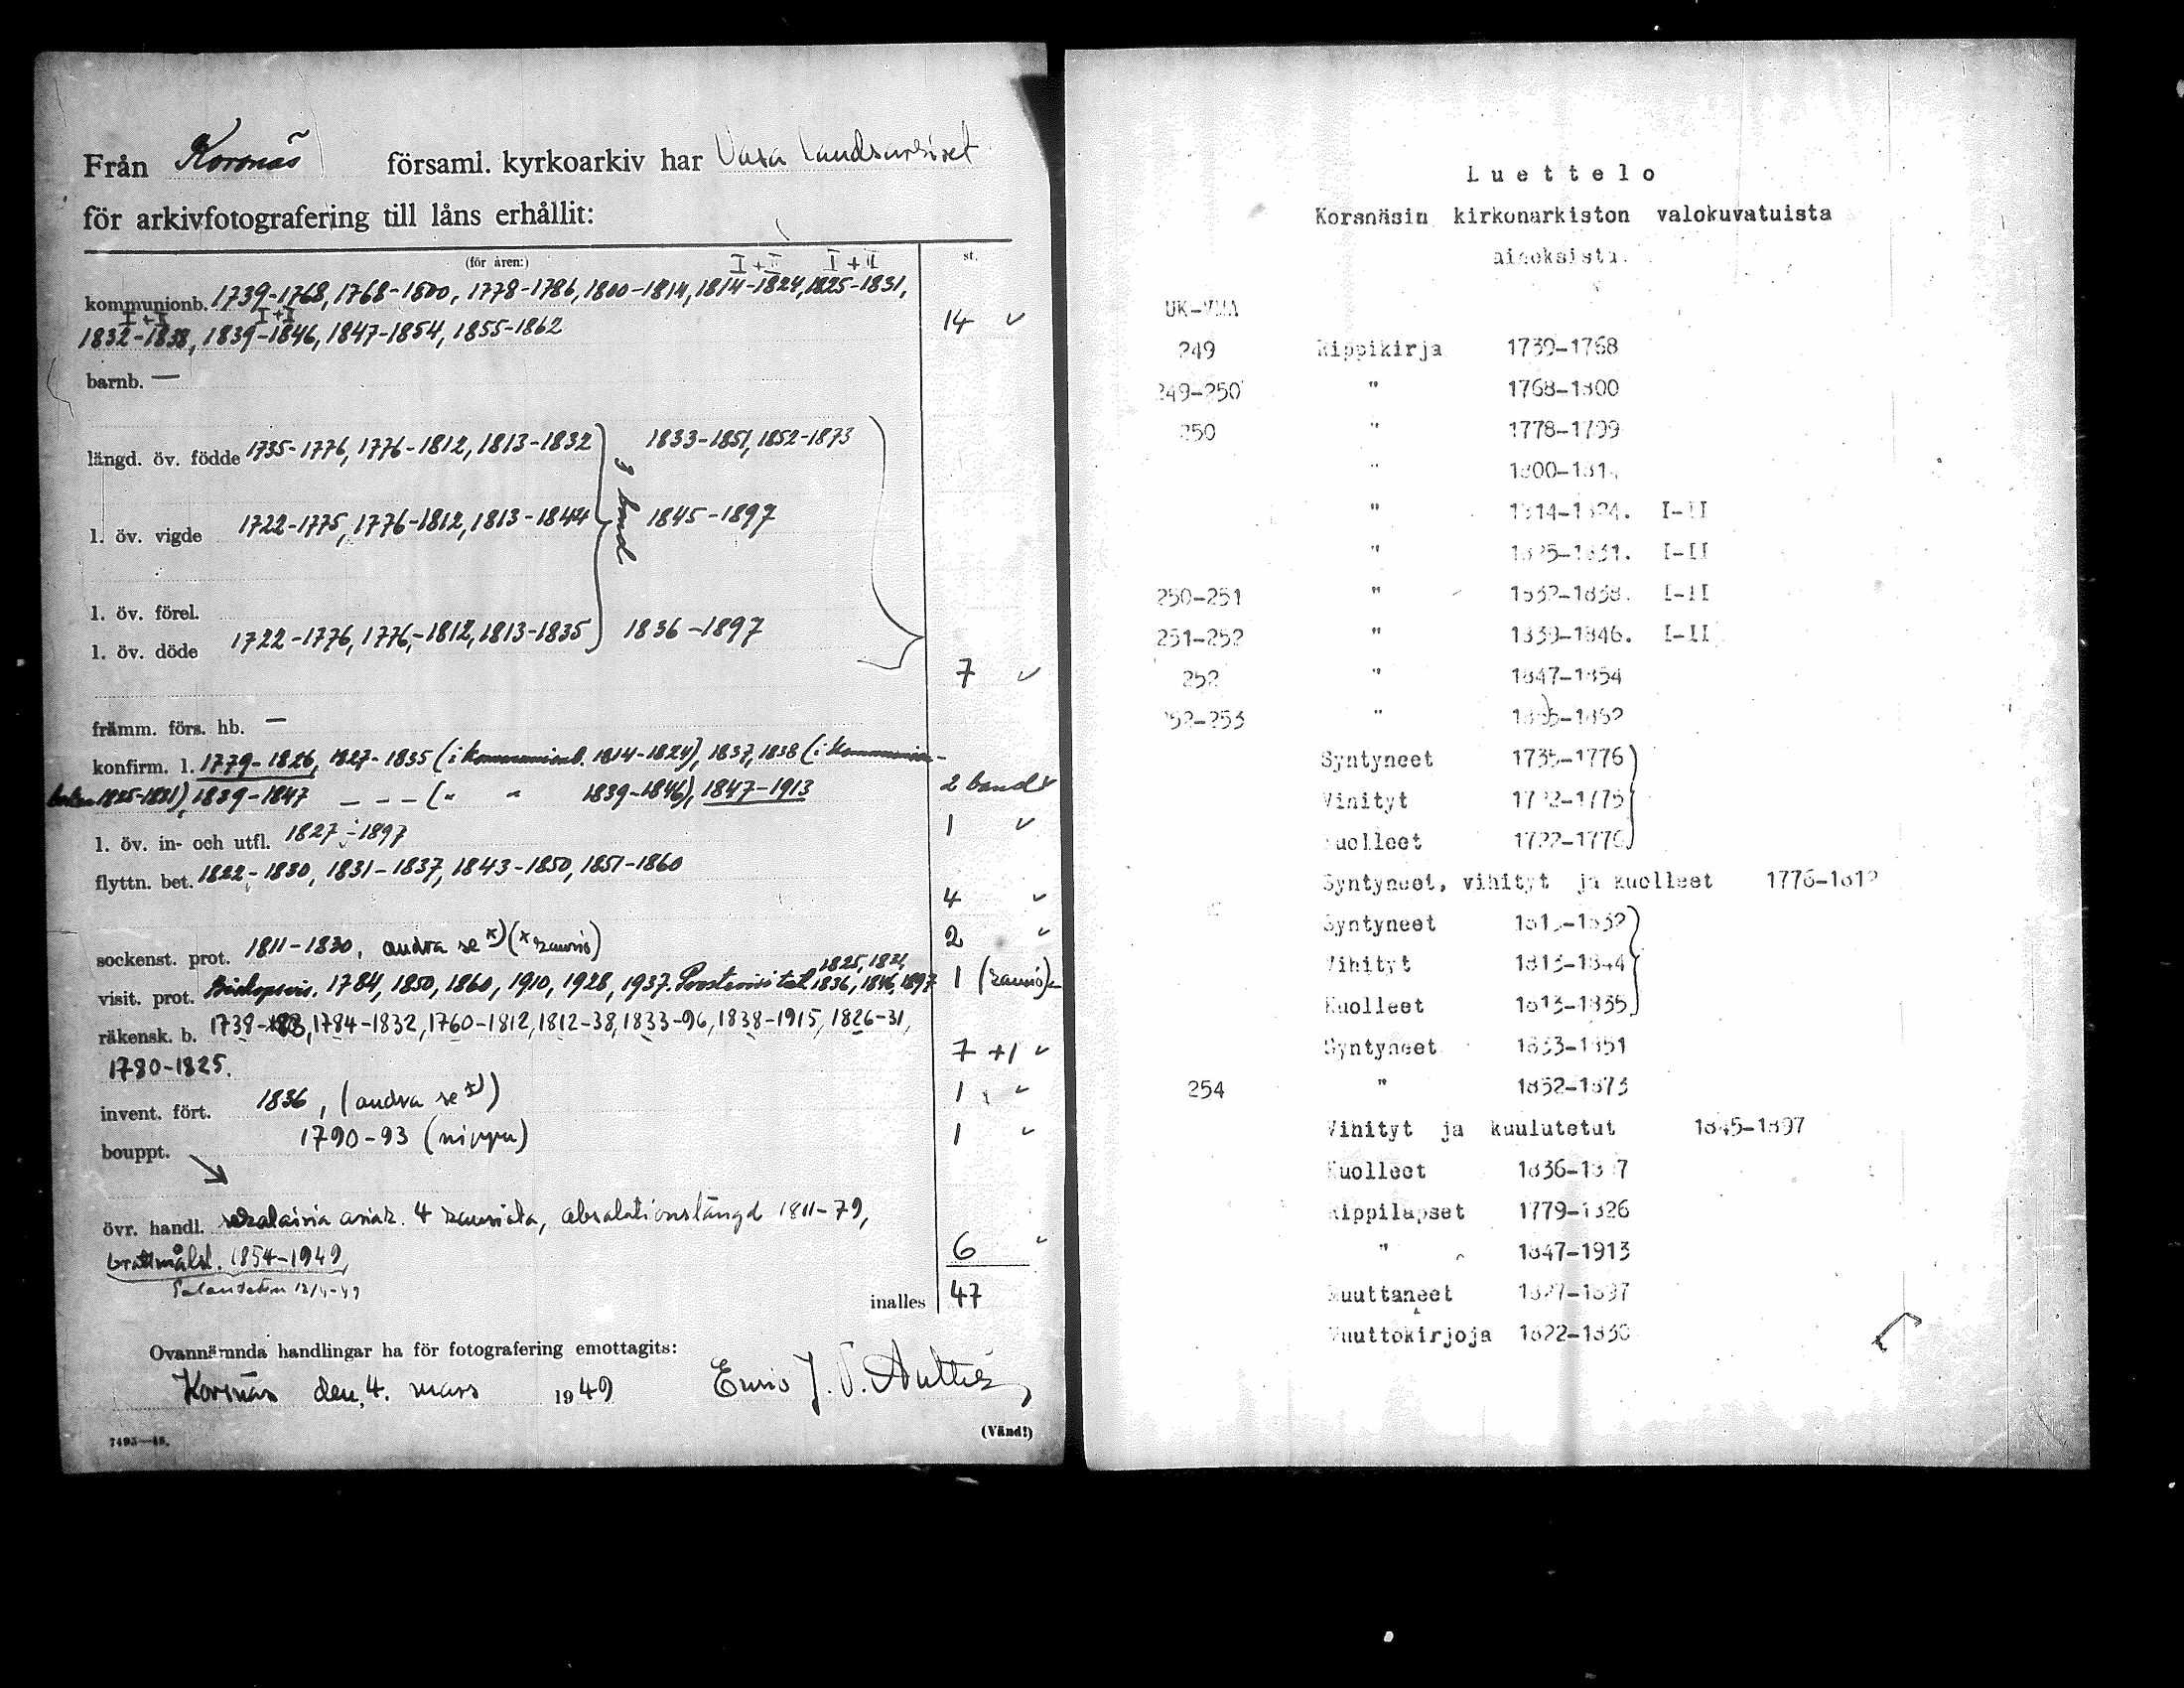 Från Korsnäs församl. kyrkoarkiv har Vasa landsarkivet
för arkivfotografering till låns erhållit:
(för åren:) I+II I+II st.
kommunionb. 1739-1768, 1768-1800, 1778-1786, 1800-1814, 1814-1824, 1825-1831,
I+II I+II
1832-1838, 1839-1846, 1847-1854, 1855-1862 14 ✓
barnb. —
längd. öv. födde 1735-1776, 1776-1812, 1813-1832 1833-1851, 1852-1873
3 band
l. öv. vigde 1722-1775, 1776-1812, 1813-1844 1845-1897
l. öv. förel.
l. öv. döde 1722-1776, 1776-1812, 1813-1835 1836-1897
7 ✓
främm. förs. hb. —
konfirm. l. 1779-1826, 1827-1835 (i kommunionb. 1814-1824), 1837, 1838 (i kommunion-
boken 1825-1831), 1839-1847 - - - (" " 1839-1846), 1847-1913 2 band ✓
l. öv. in- och utfl. 1827-1897 1 ✓
flyttn. bet. 1822-1830, 1831-1837, 1843-1850, 1851-1860
4 ✓
sockenst. prot. 1811-1830, andra se x) 2 ✓
1825, 1831,
visit. prot. Biskopsvis. 1784, 1850, 1860, 1910, 1928, 1937. 1836, 1846, 1897 1
räkensk. b. 1784-1832, 1760-1812, 1812-38, 1833-96, 1838-1915, 1826-31,
1780-1825. 7 +1 ✓
invent. fört. 1836, (andra se x)) 1 ✓
bouppt. 1790-93 (nippu) 1 ✓
övr. handl. sekalaisia asiak. 4 absolutionslängd 1811-79,
brottmålsl. 1854-1949 6 ✓
inalles 47
Ovannämnda handlingar ha för fotografering emottagits:
Korsnäs den 4. mars 1949
(Vänd!)
7495—48.
Luettelo
Korsnäsin kirkonarkiston valokuvatuista
aineksista.
UK-VMA
249 Rippikirja 1739-1768
249-250 " 1768-1800
250 " 1778-1799
" 1800-1814
" 1814-1824. I-II
" 1825-1831. I-II
250-251 " 1832-1838. I-II
251-252 " 1839-1846. I-II
252 " 1847-1854
252-253 " 1855-1862
Syntyneet 1735-1776
Vihityt 1722-1775
Kuolleet 1722-1776
Syntyneet, vihityt ja kuolleet 1776-1812
Syntyneet 1813-1832
Vihityt 1813-1844
Kuolleet 1813-1835
Syntyneet 1833-1851
254 " 1852-1873
Vihityt ja kuulutetut 1845-1897
Kuolleet 1836-1897
Rippilapset 1779-1826
" 1847-1913
Muuttaneet 1827-1897
Muuttokirjoja 1822-1830